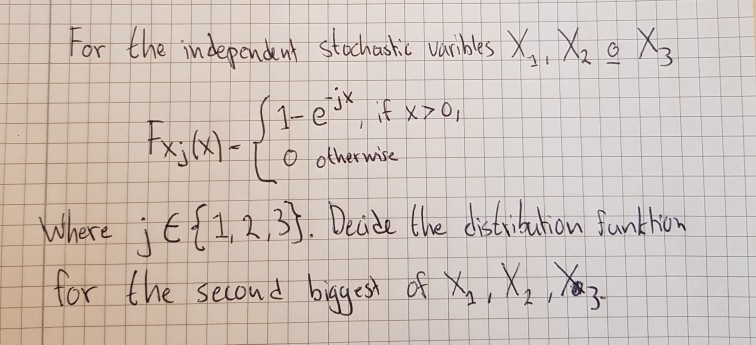 For the independent stochastic varibles X₁, X₂ o X₃
F_Xj(x) = { 1 - e^-jx, if x > 0,
0 otherwise
Where j ∈ {1, 2, 3}. Decide the distribution funkthion
for the second biggest of X₁, X₂, X₃.